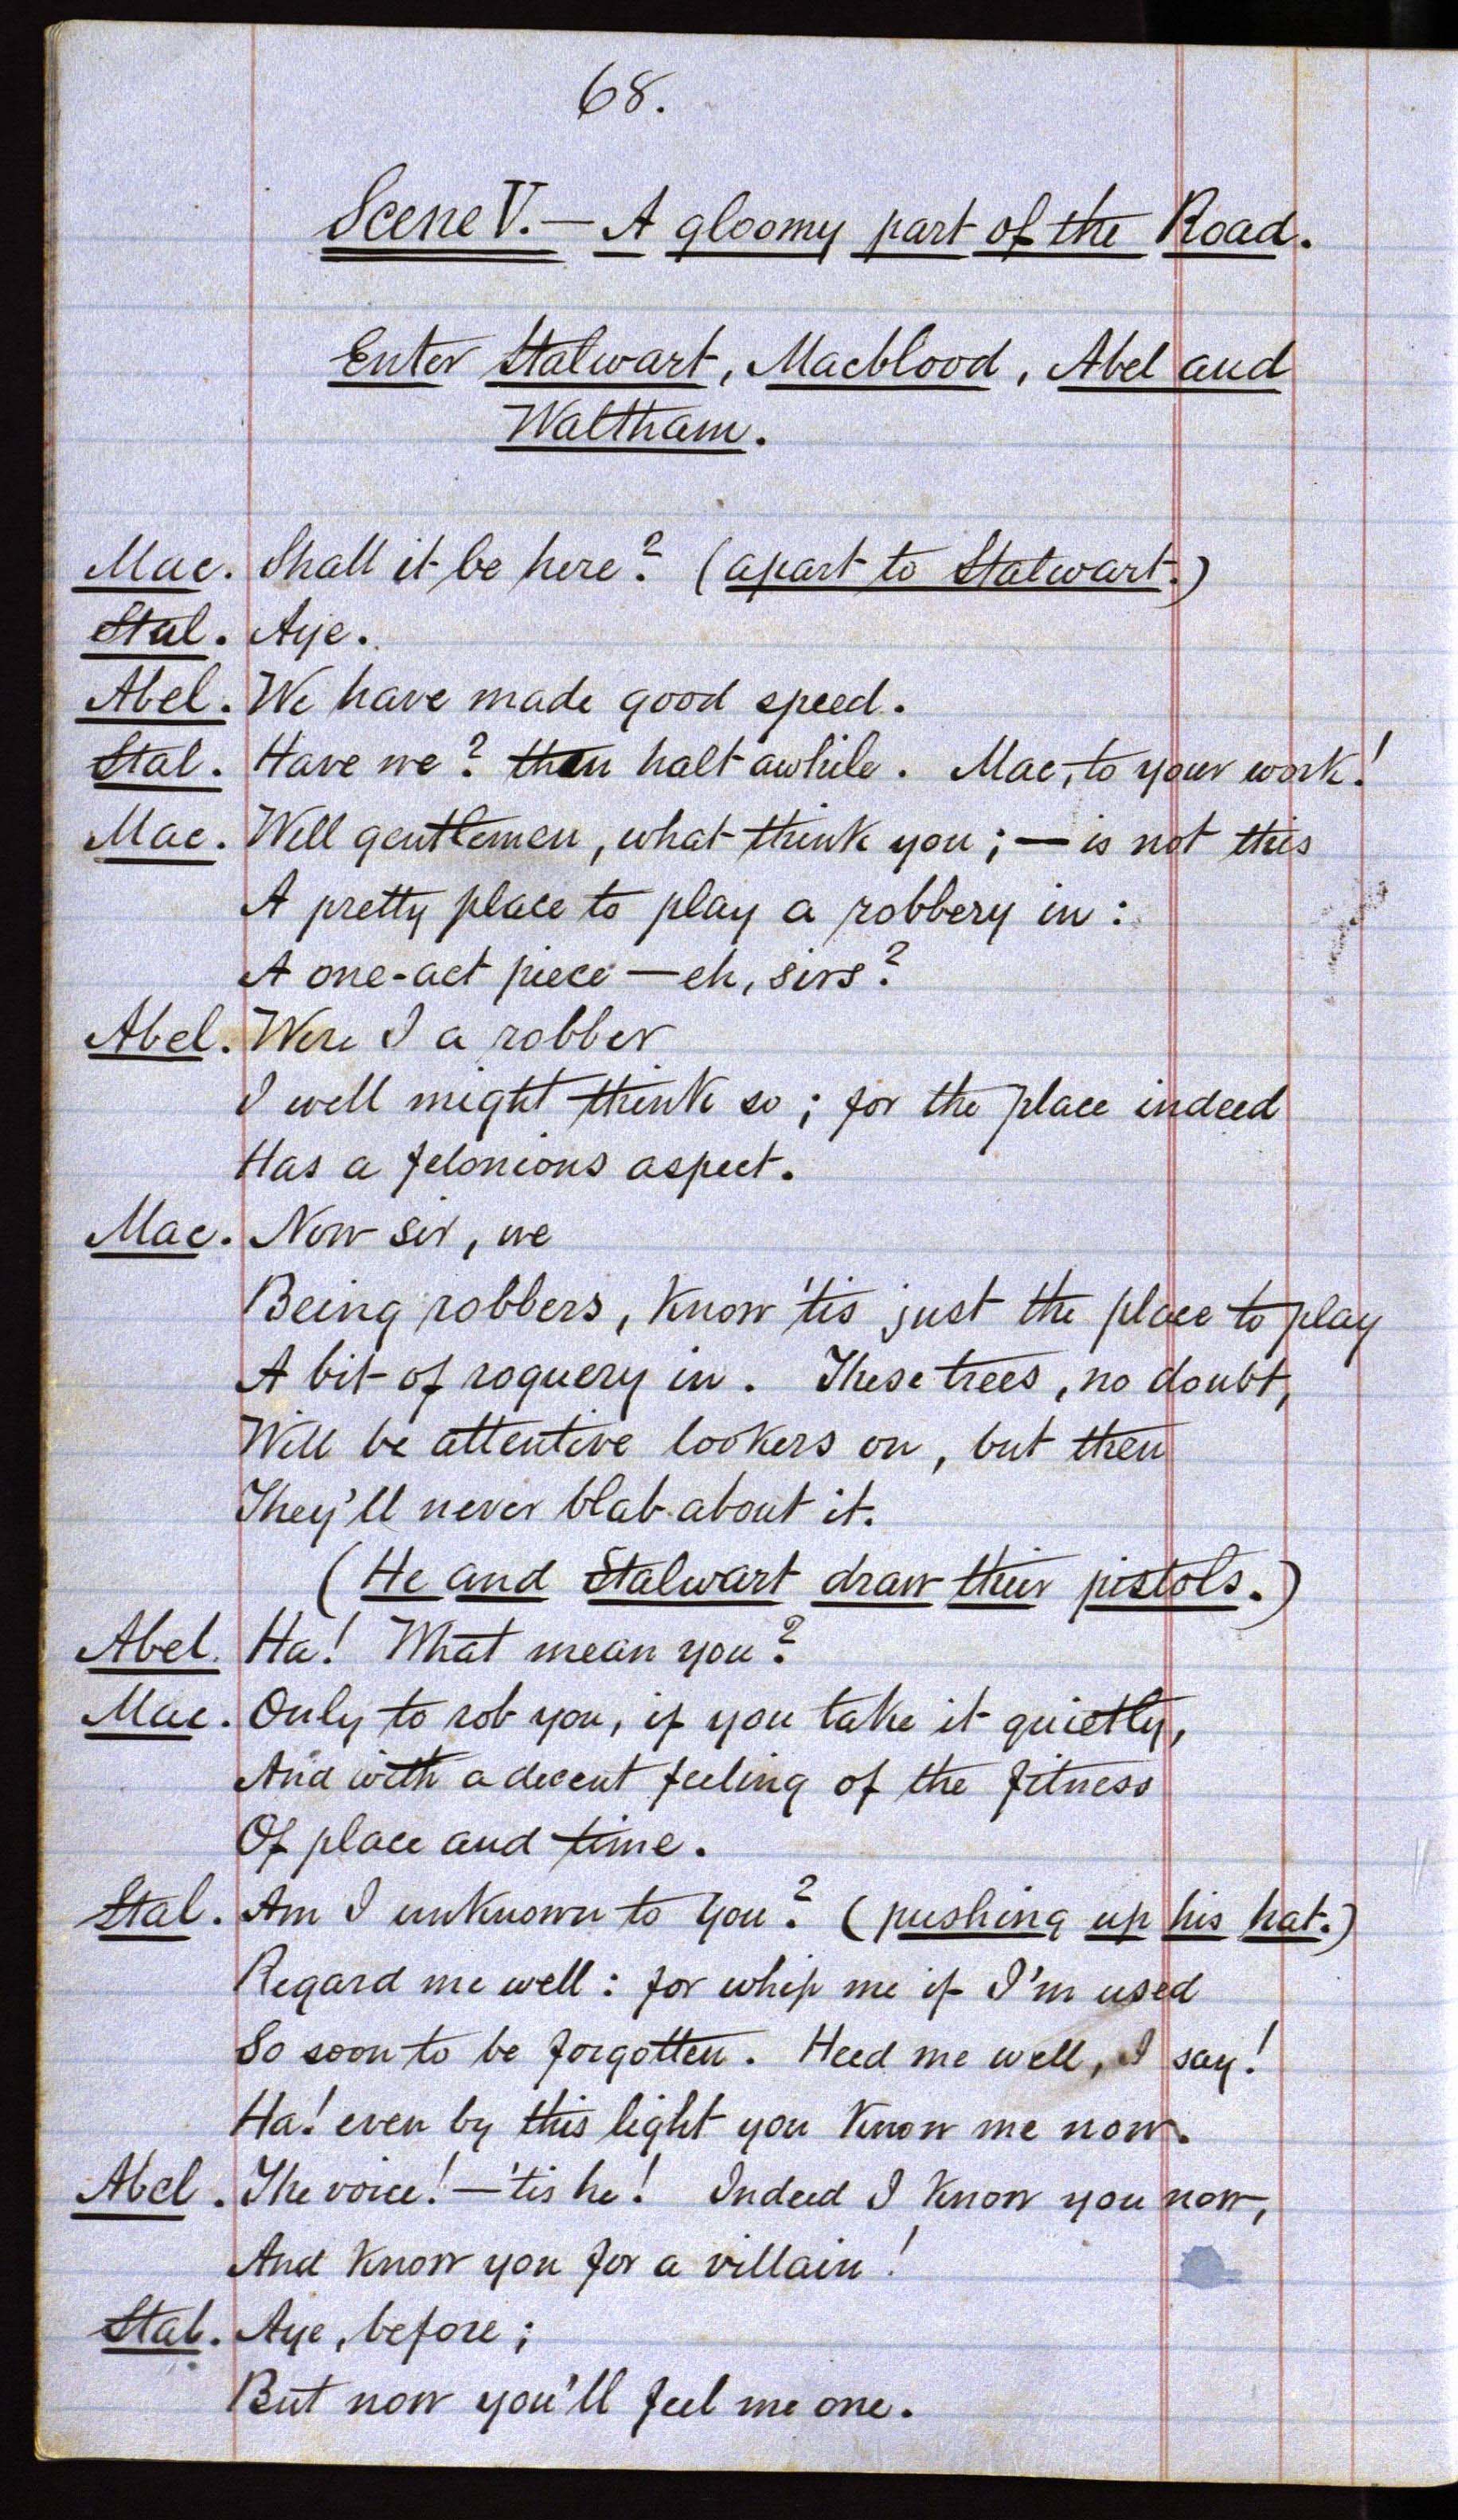 68.
Scene V.— A gloomy part of the Road.
Enter Stalwart, Macblood, Abel and
Waltham.
Mac. Shall it be here? (apart to Stalwart.)
Stal. Aye.
Abel. We have made good speed.
Stal. Have we? then halt awhile. Mac, to your work!
Mac. Well gentlemen, what think you;— is not this
A pretty place to play a robbery in:
A one-act piece — eh, sirs?
Abel. Were I a robber
I well might think so; for the place indeed
Has a felonious aspect.
Mac. Now sir, we
Being robbers, know 'tis just the place to play
A bit of roguery in. These trees, no doubt,
Will be attentive lookers on, but then
They'll never blab about it.
(He and Stalwart draw their pistols.)
Abel. Ha! What mean you?
Mac. Only to rob you, if you take it quietly,
And with a decent feeling of the fitness
Of place and time.
Stal. Am I unknown to you? (pushing up his hat.)
Regard me well: for whip me if I'm used
So soon to be forgotten. Heed me well, I say!
Ha! even by this light you know me now.
Abel. The voice! — 'tis he! Indeed I know you now,
And know you for a villain!
Stal. Aye, before;
But now you'll feel me one.